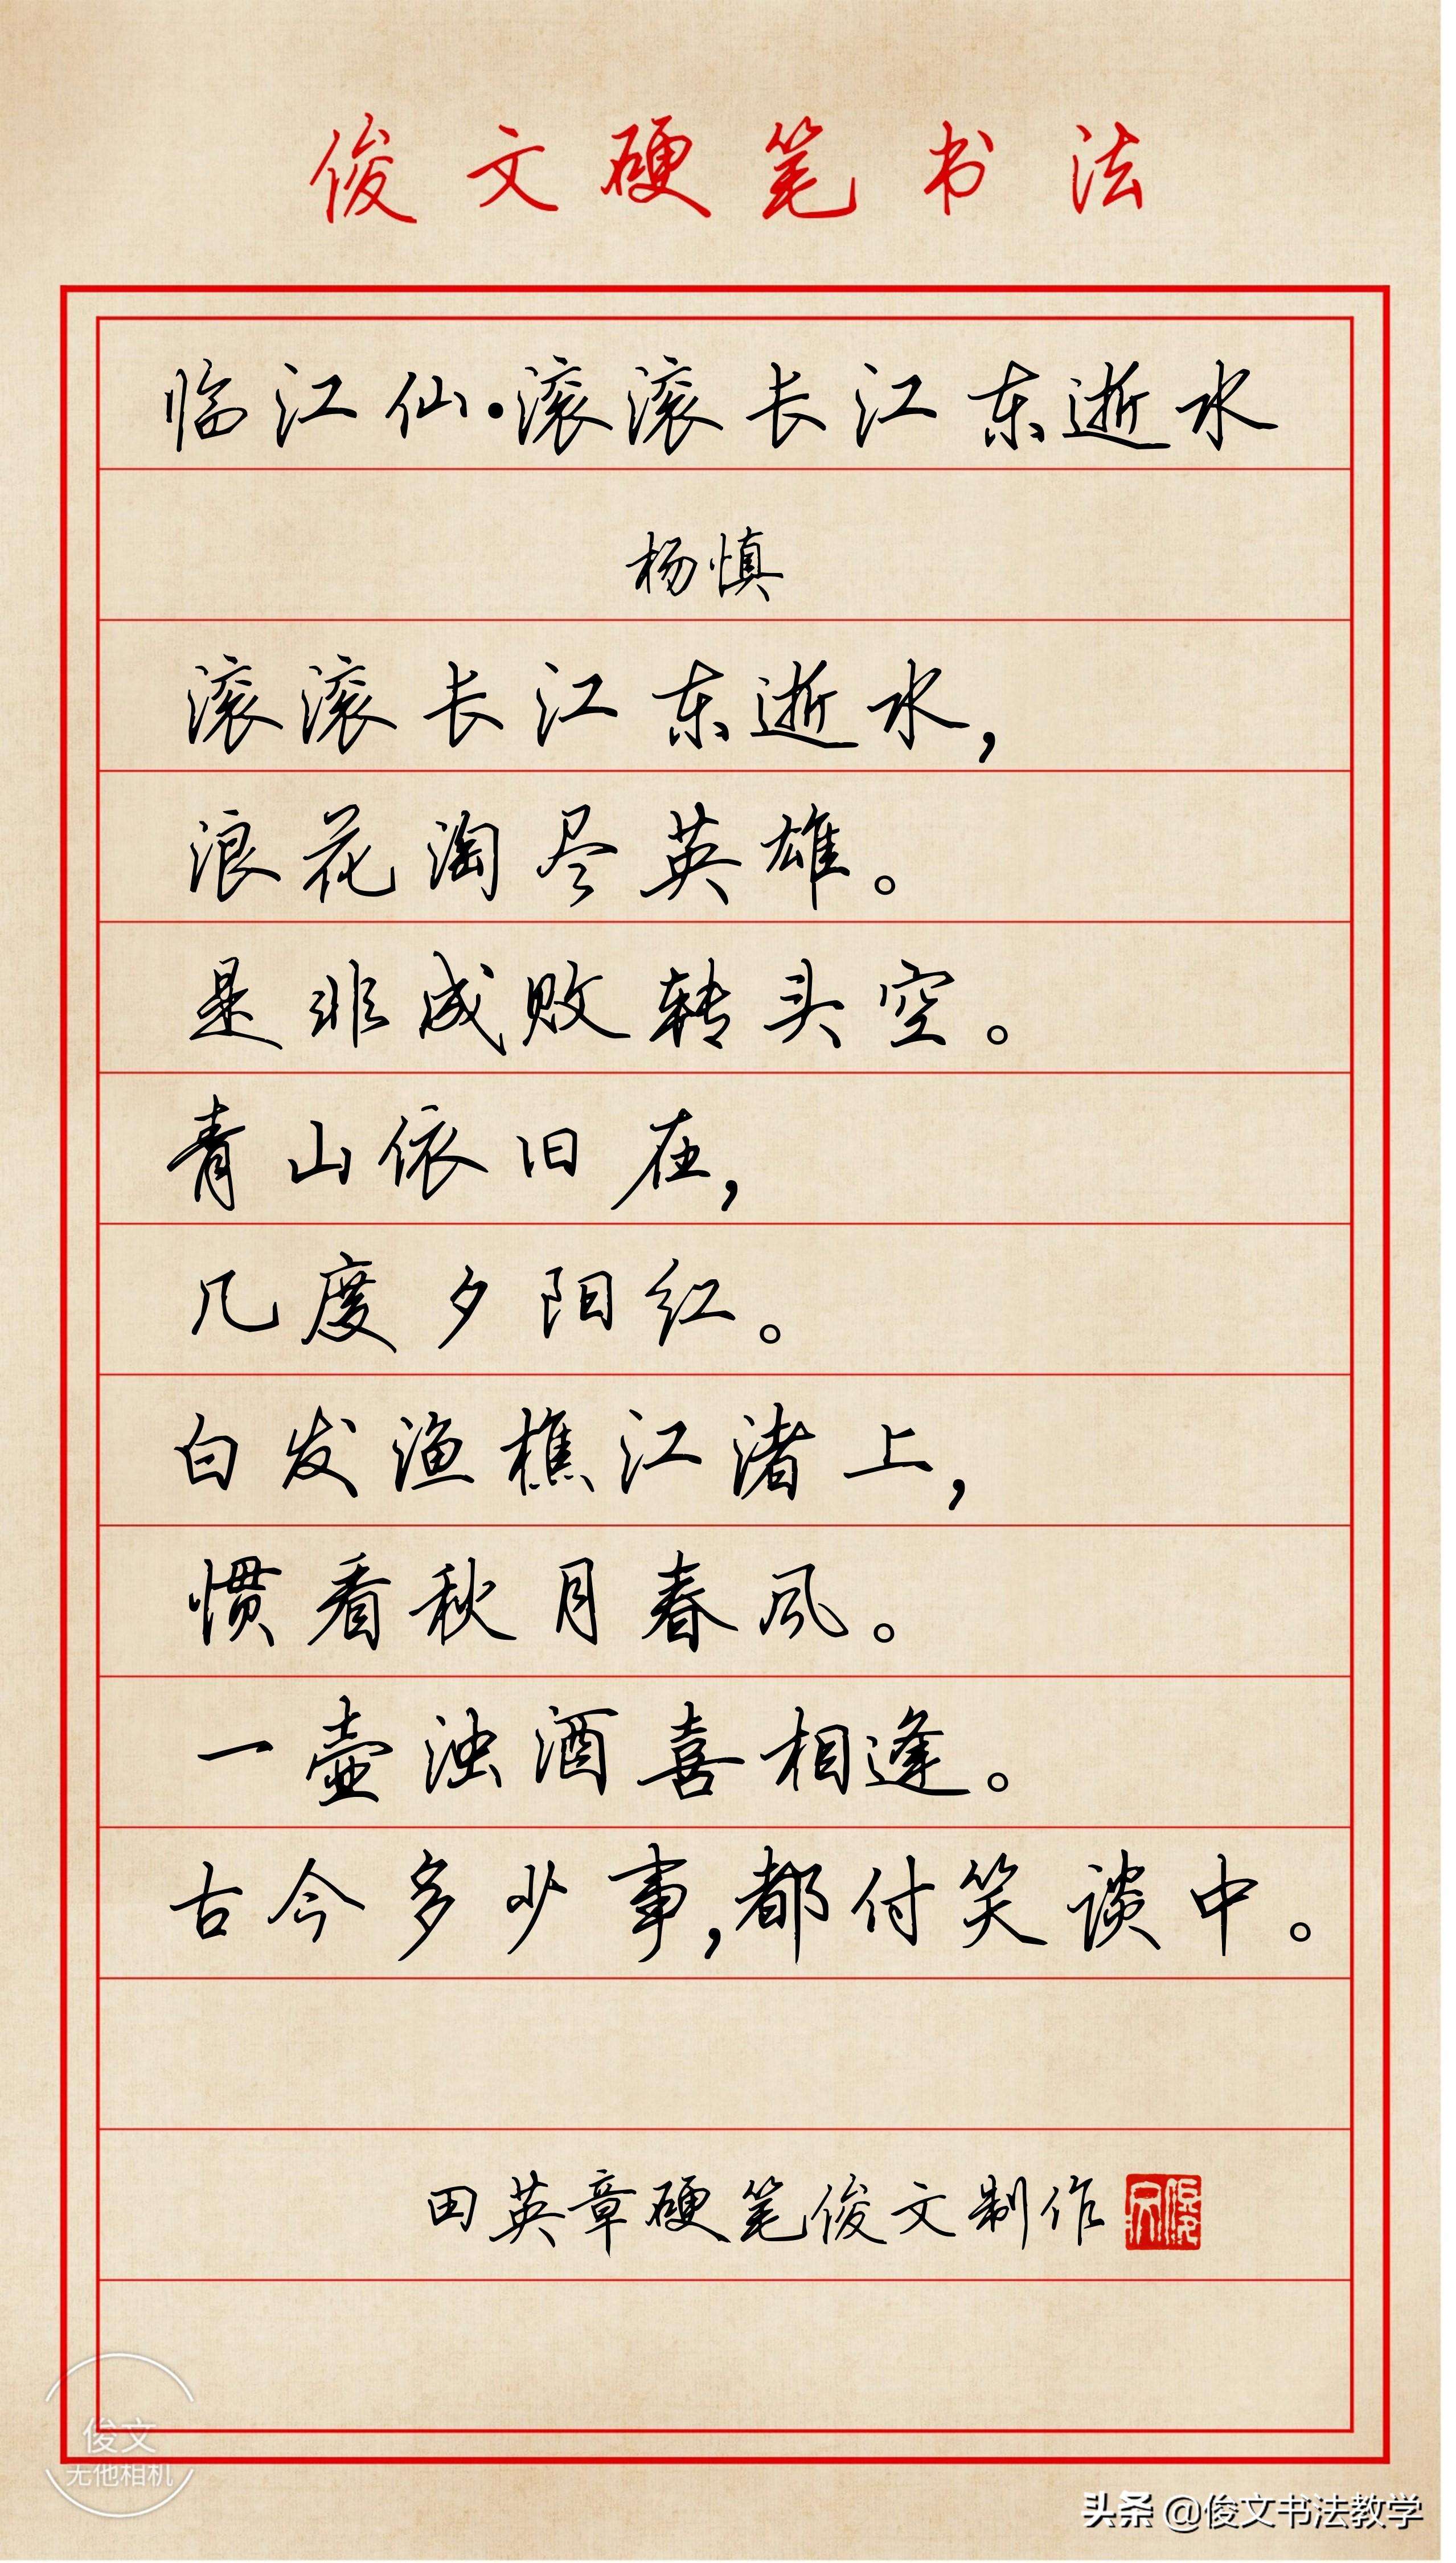 俊文硬笔书法
临江仙·滚滚长江东逝水
杨慎
滚滚长江东逝水，
浪花淘尽英雄。
是非成败转头空。
青山依旧在，
几度夕阳红。
白发渔樵江渚上，
惯看秋月春风。
一壶浊酒喜相逢。
古今多少事，都付笑谈中。
田英章硬笔俊文制作
俊文
俊文
无他相机
头条 @俊文书法教学